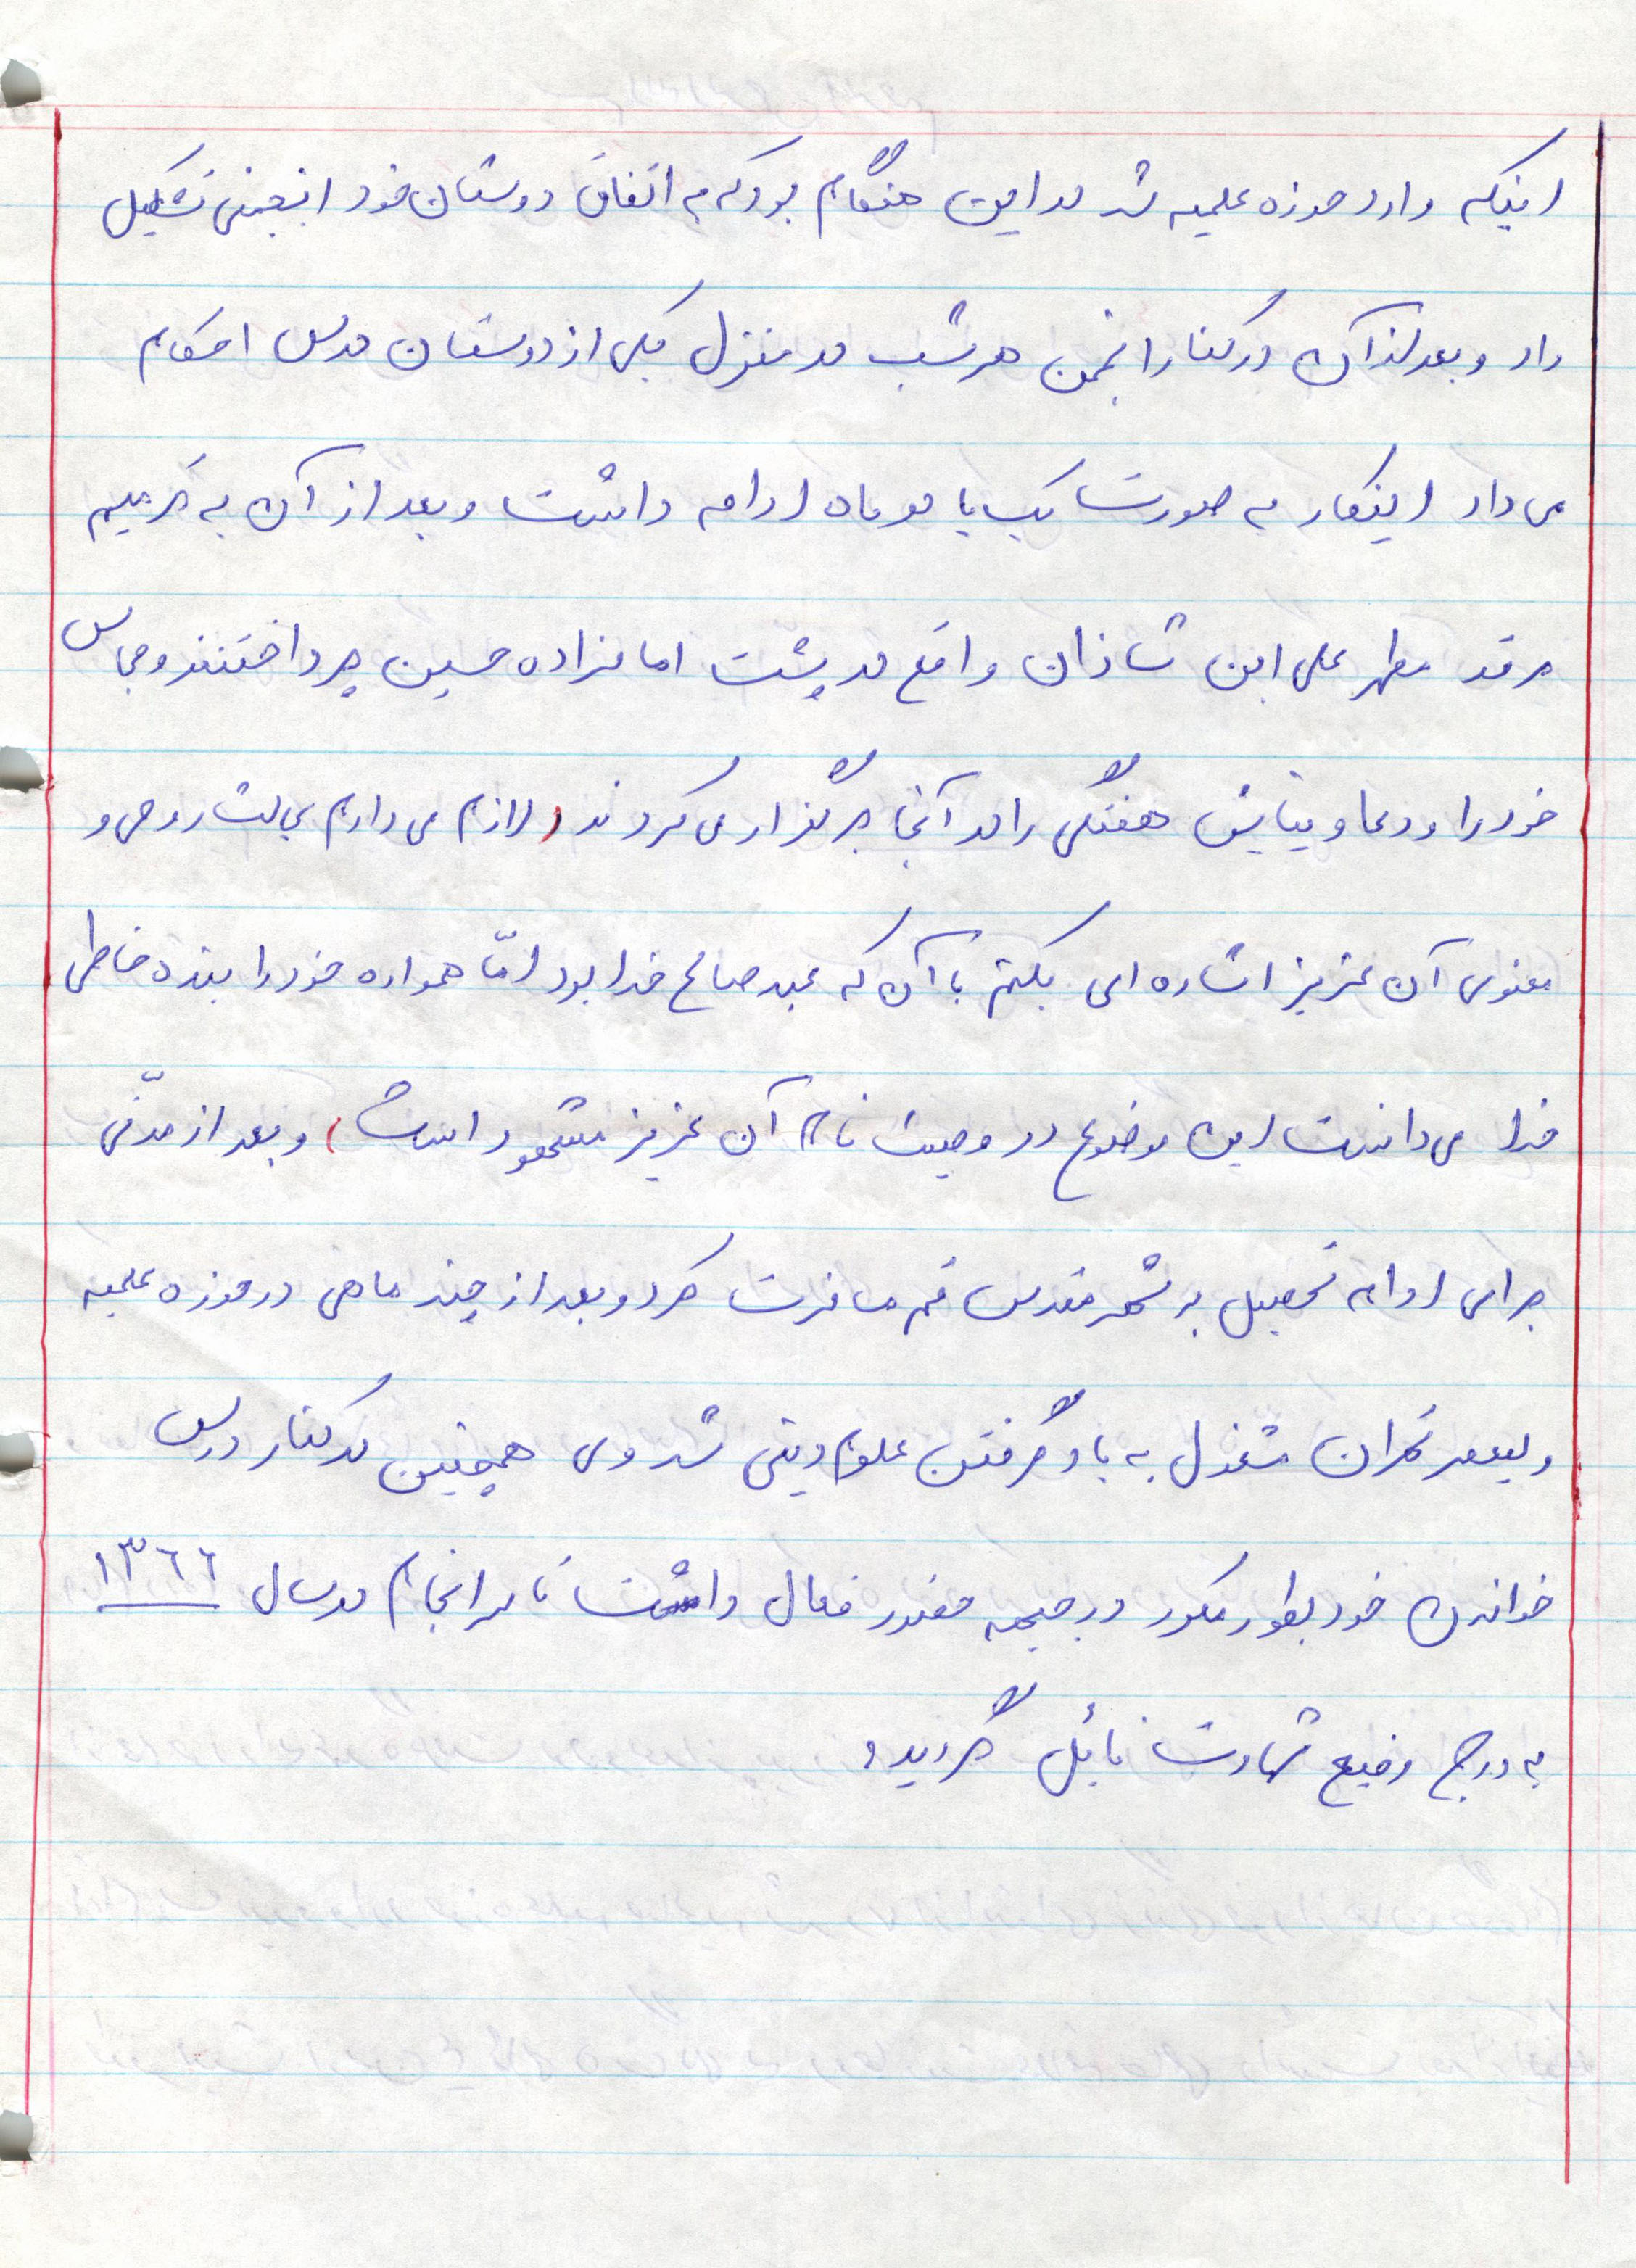 اینکه وارد حوزه علمیه شد در این هنگام بود که به اتفاق دوستان خود انجمنی تشکیل
داد و بعد از آن در کنار انجمن هر شب در منزل یکی از دوستان درس احکام
می داد اینکار به صورت یک یا دو ماه ادامه داشت و بعد از آن به ترمیم
مرقد مطهر علی ابن شاذان واقع در پشت امامزاده حسین پرداختند و مجالس
خود را و دعا و نیایش هفتگی را در آنجا برگزار می کردند (لازم می دارم به حالت روحی و
معنوی آن عزیز اشاره ای بکنم با آن که عبد صالح خدا بود امّا همواره خود را بنده خاطی
خدا می دانست این موضوع در وصیت نامه آن عزیز مشهود است) و بعد از مدّتی
برای ادامه تحصیل به شهر مقدس قم مسافرت کرد و بعد از چند ماهی در حوزه علمیه
ولیعصر تهران مشغول به یاد گرفتن علوم دینی شد وی همچنین در کنار درس
خواندن خود بطور مکرر در جبهه حضور فعال داشت تا سرانجام در سال ۱۳۶۶
به درجه رفیع شهادت نائل گردید.